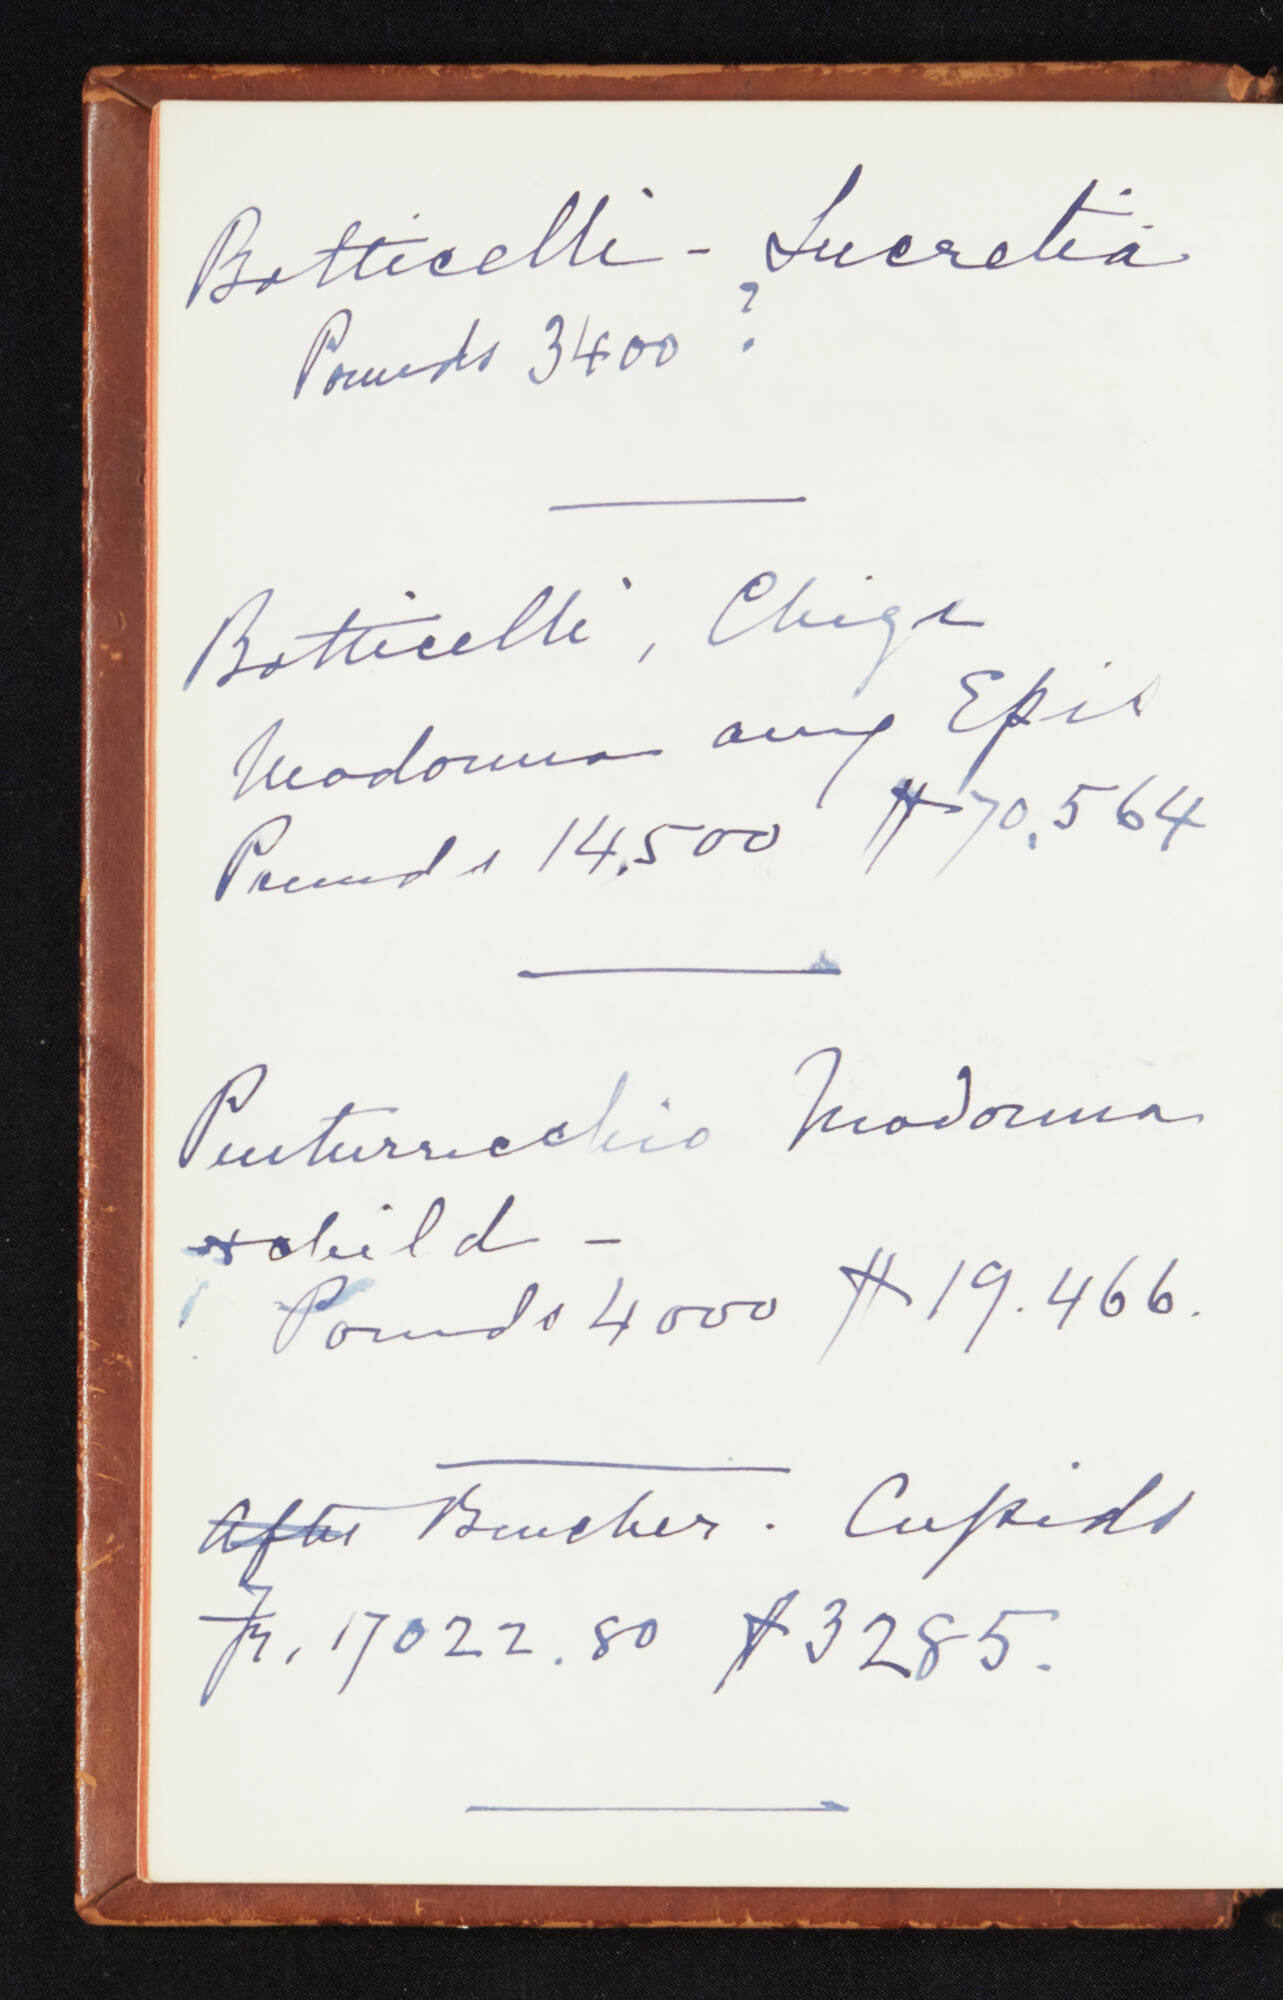 Botticelli - Lucretia
Pounds 3400 ?
Botticelli, Chigi
Madonna aug Epis
Pounds 14,500 $70,564
Pinturricchio Madonna
& child -
Pounds 4000 $19.466.
After Boucher. Cupids
Fr. 17022.80 $3285.